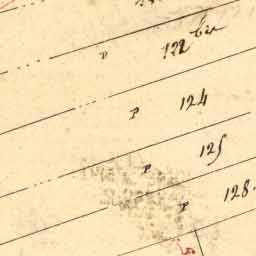 P 122 bis
P 124
P 125
P 128.